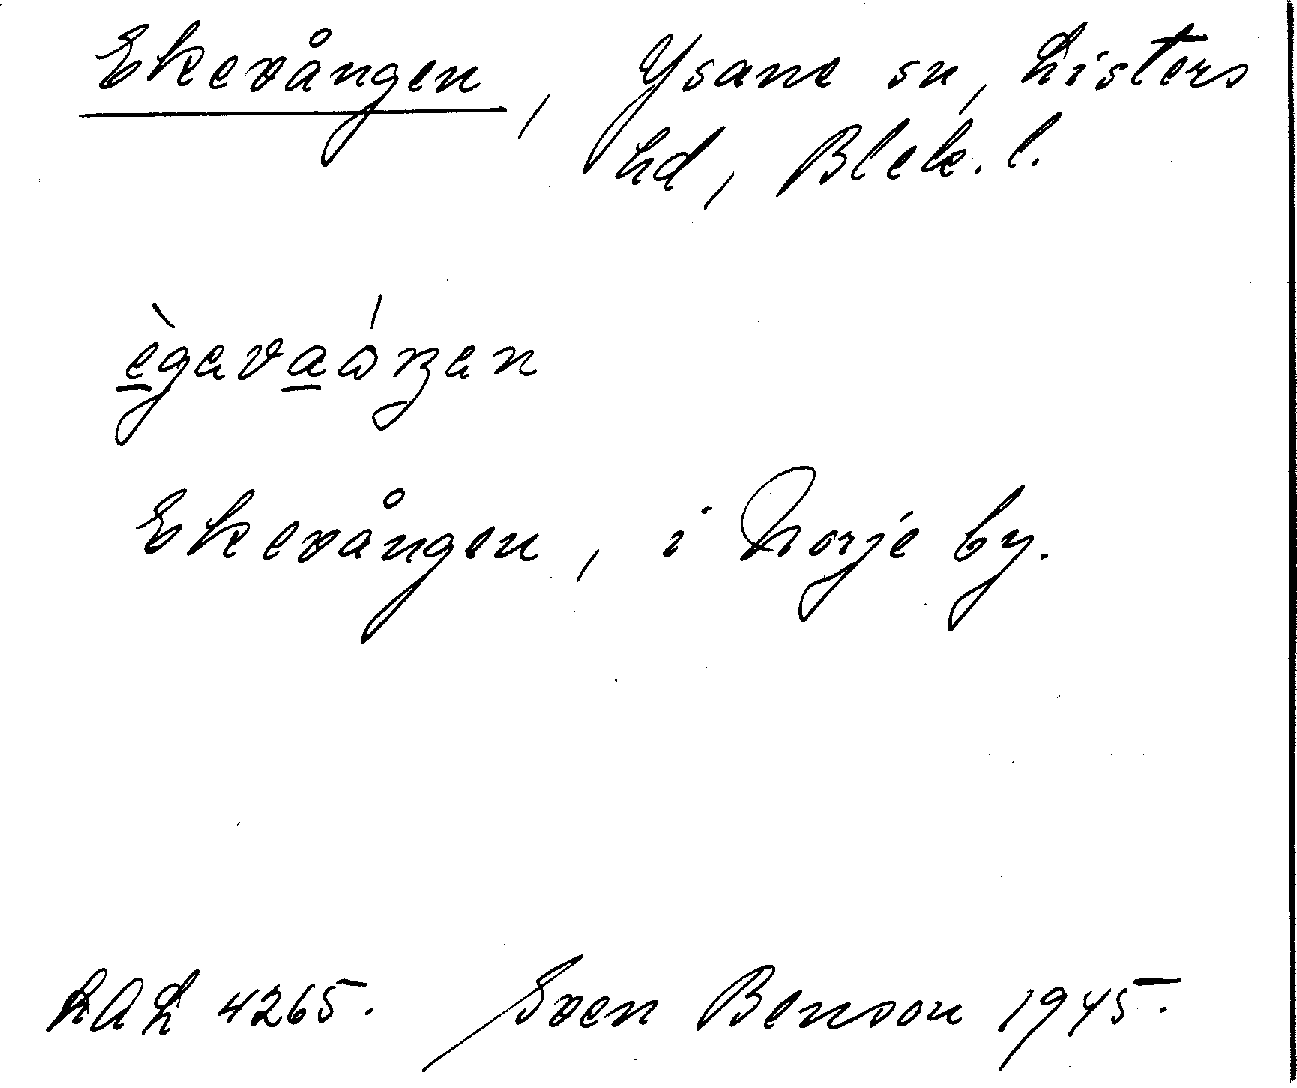 Ekevången, Ysane sn, Listers
hd, Blek. l.
Ekevången, i Norje by.
LAL 4265. Sven Benson 1945.